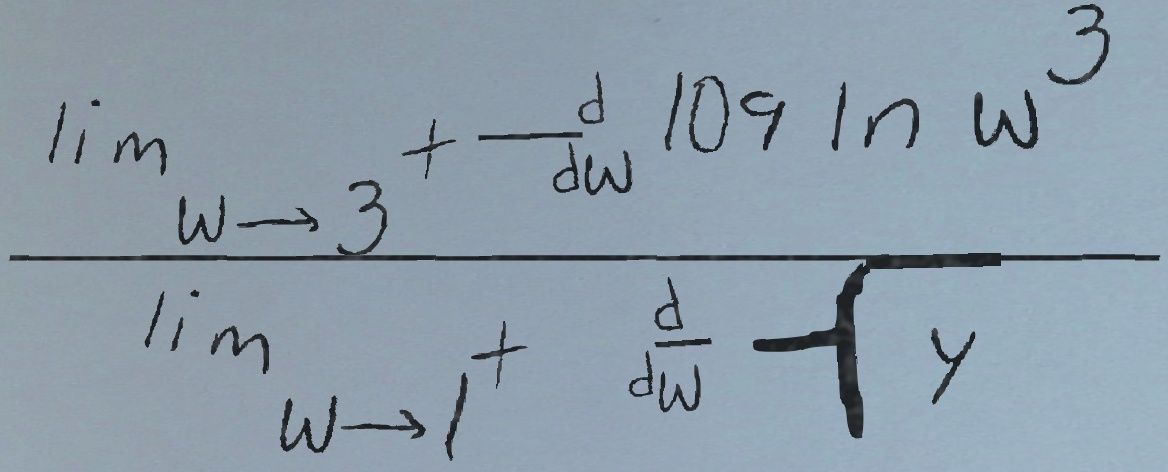 lim w→3⁺ d/dw 109 ln w³
lim w→1⁺ d/dw -√y